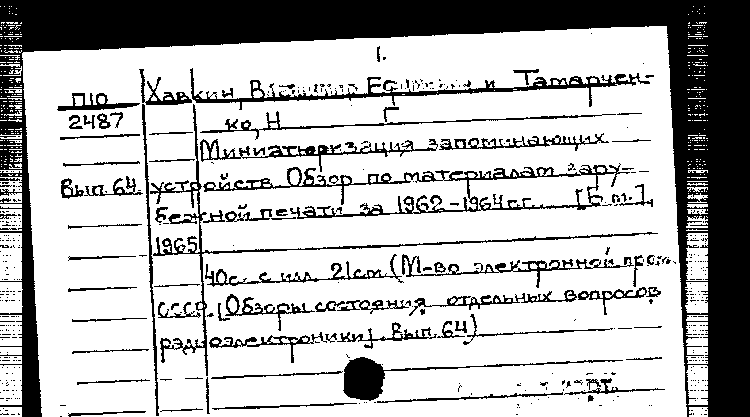 1.
П10 Хавкин, Владимир Ефимович и Татарчен-
2487 ко, Н Г
Миниатюризация запоминающих
Вып. 64. устройств Обзор по материалам зару-
бежной печати за 1962-1964 г.г. [Б.м.],
1965
40с. с илл. 21см (М-во электронной пром.
СССР. [Обзоры состояния отдельных вопросов
радиоэлектроники]. Вып. 64)